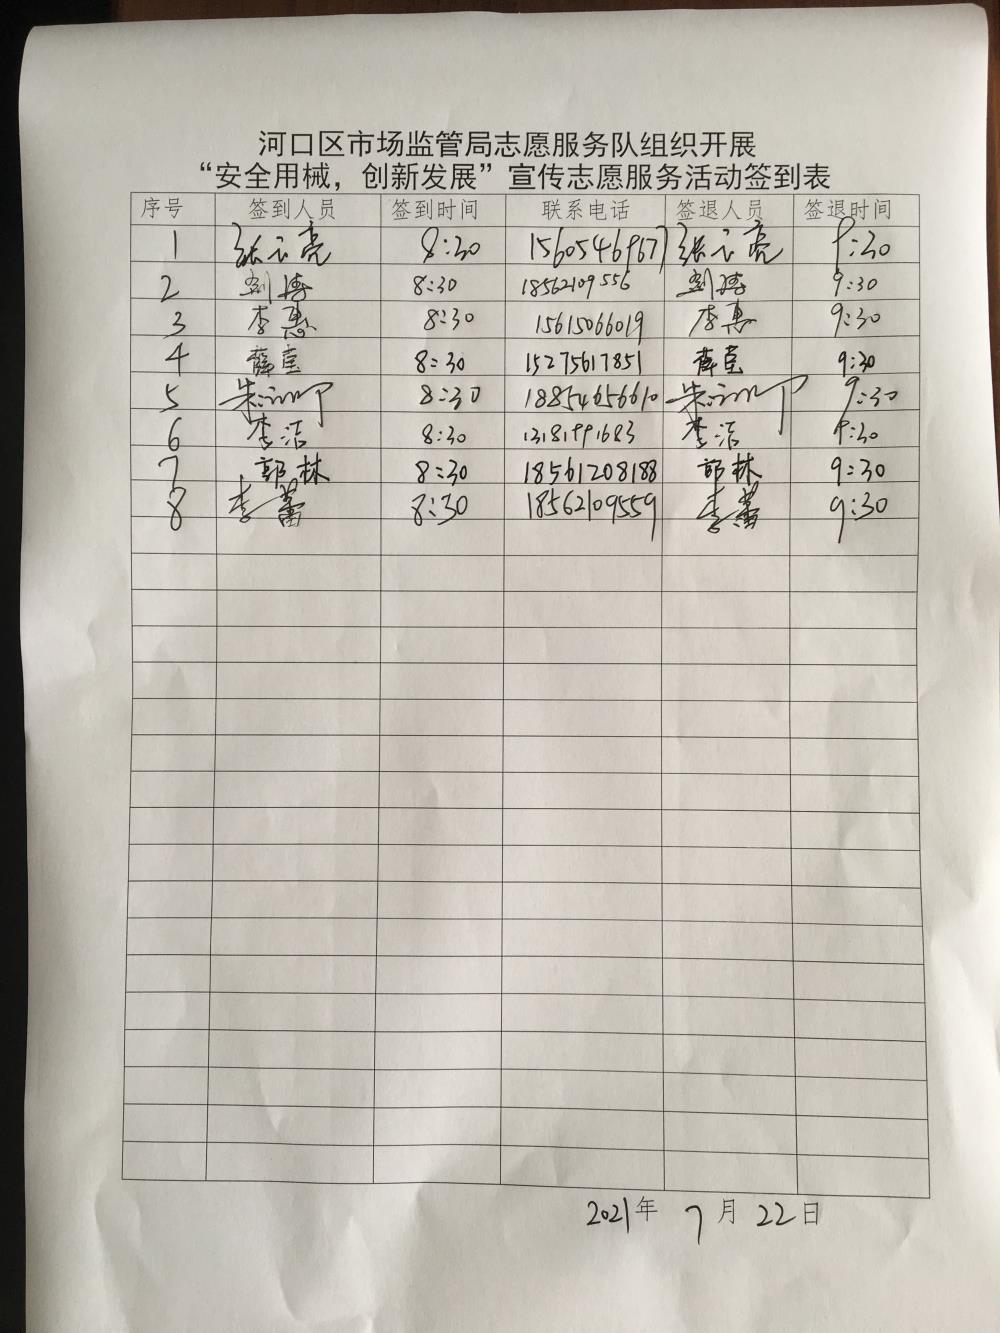 河口区市场监管局志愿服务队组织开展
“安全用械，创新发展”宣传志愿服务活动签到表
序号 签到人员 签到时间 联系电话 签退人员 签退时间
1 张云亮 8:30 15605469677 张云亮 9:30
2 刘博 8:30 18562109556 刘博 9:30
3 李惠 8:30 15615066019 李惠 9:30
4 薛莹 8:30 15275617851 薛莹 9:30
5 朱 8:30 18854656610 朱 9:30
6 李洁 8:30 13181991683 李洁 9:30
7 郭林 8:30 18561208188 郭林 9:30
8 李蕾 8:30 18562109559 李蕾 9:30
2021年 7月 22日